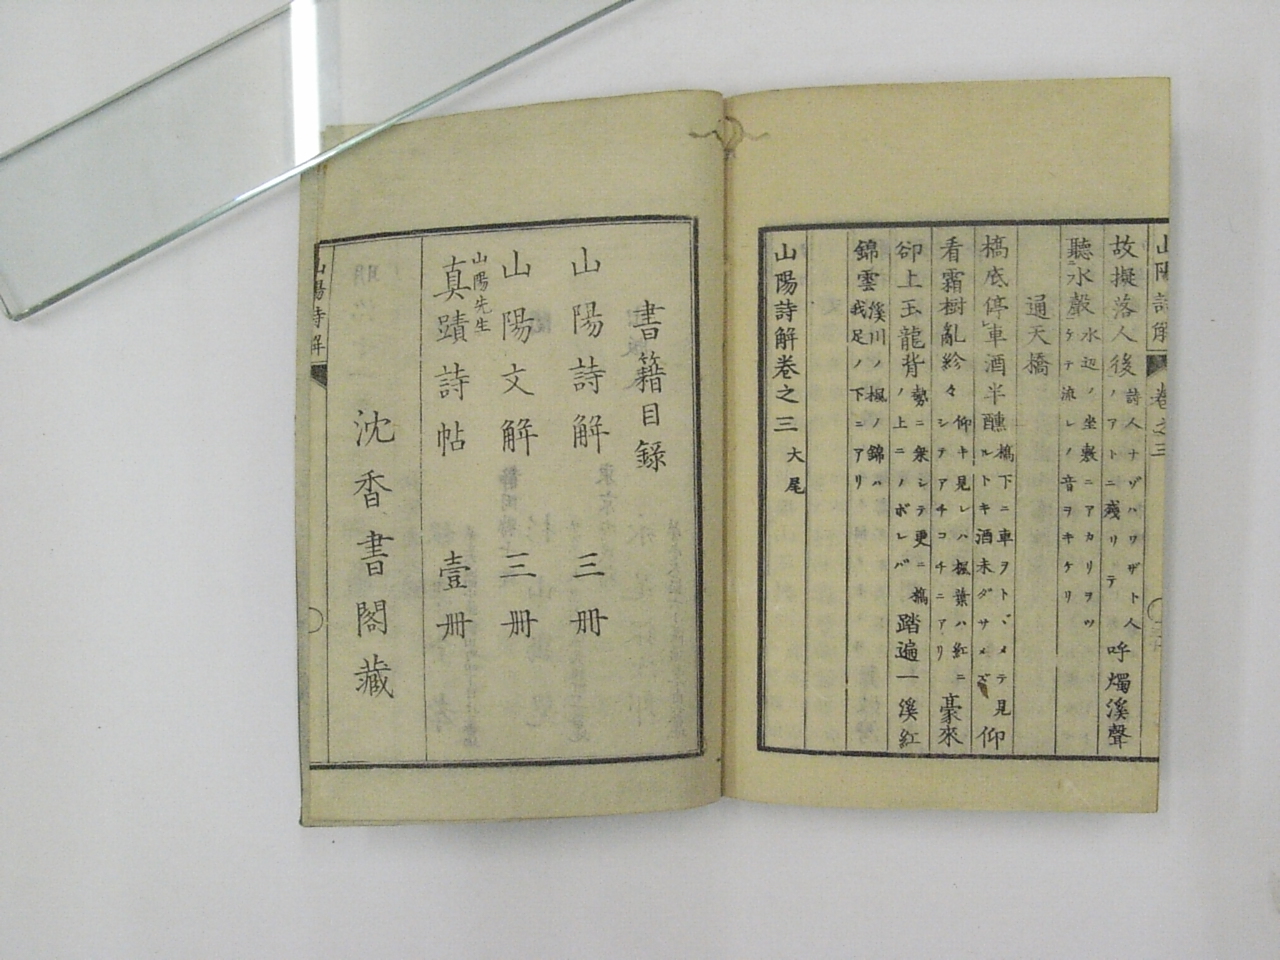 故擬落人後 詩人ナゾハワザト人ノアトニ殘リテ 呼燭溪聲
聽水聲 水辺ノ坐敷ニアカリヲツケテ流レノ音ヲキケリ
通天橋
橋底停車酒半醺 橋下ニ車ヲトヾメテ見ルトキ酒未ダサメズ 仰
看霜樹亂紛々 仰キ見レハ楓葉ハ紅ニシテアチコチニアリ 豪來
卻上玉龍背 勢ニ乘シテ更ニ橋ノ上ニノボレバ 踏遍一溪紅
錦雲 溪川ノ楓ノ錦ハ我足ノ下ニアリ
山陽詩解卷之三 大尾
書籍目錄
山陽詩解 三冊
山陽文解 三冊
山陽先生 真蹟詩帖 壹冊
沈香書閣藏
山陽詩解